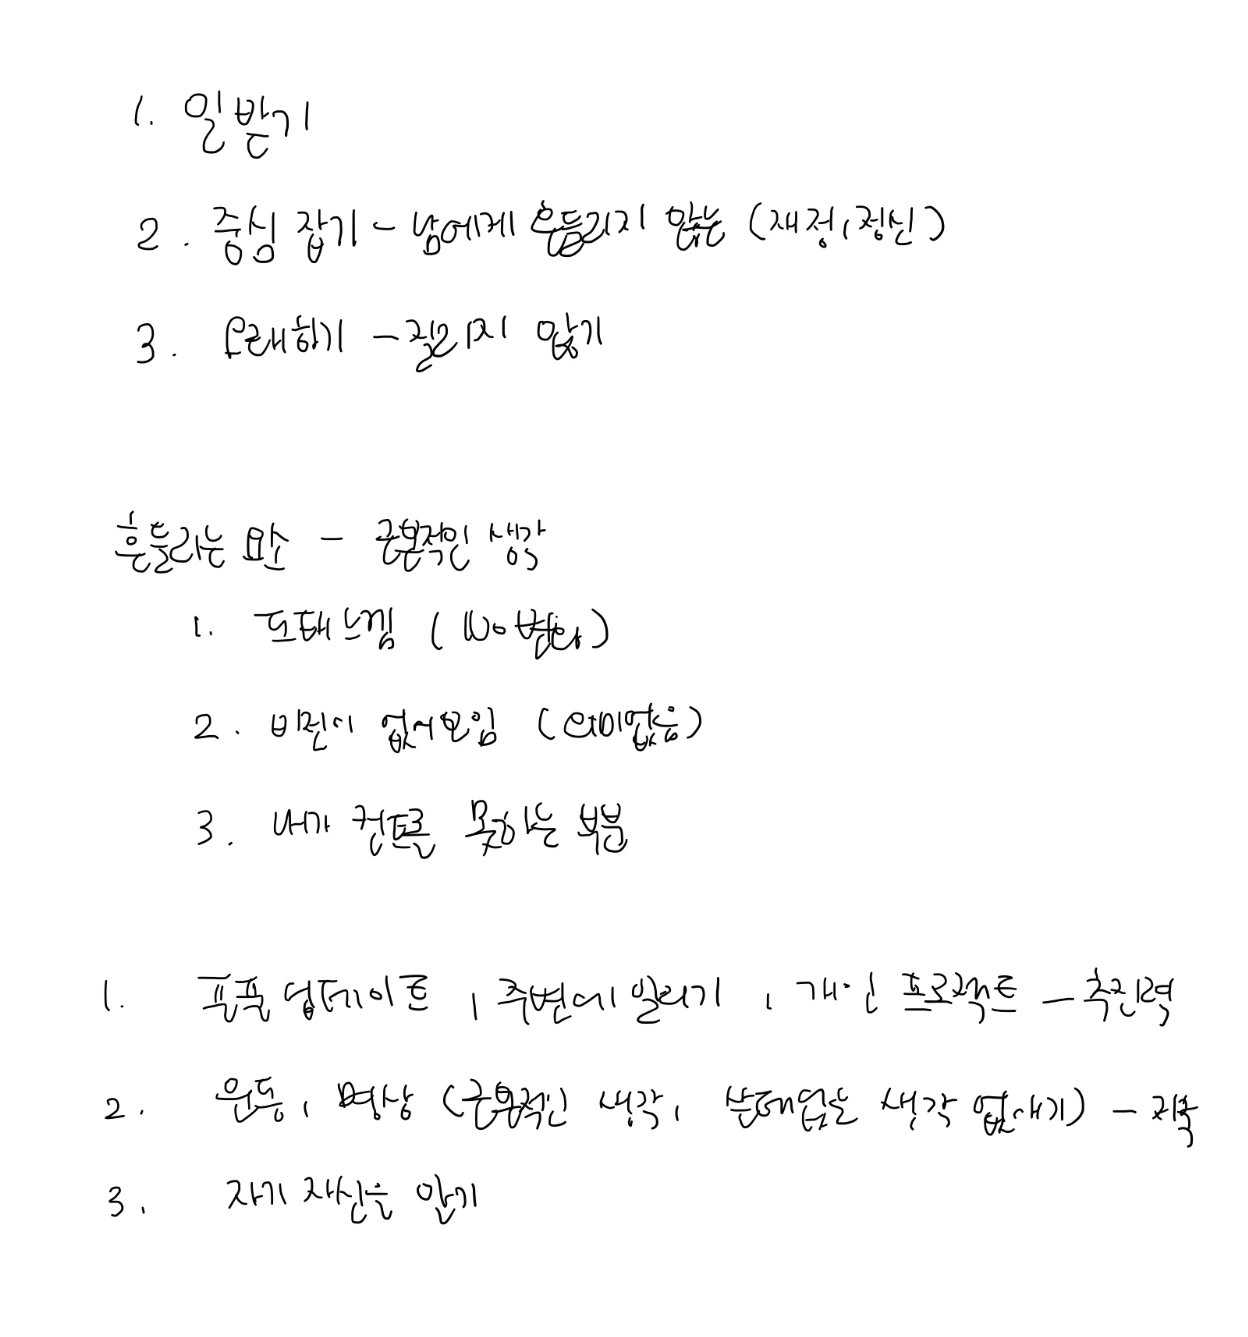 1. 일 받기
2. 중심 잡기 - 남에게 흔들리지 않는 (재정, 정신)
3. 오래하기 - 질리지 않기
흔들리는 요소 - 근본적인 생각
1. 도태 느낌 (No 변화)
2. 비전이 없어보임 (의미없음)
3. 내가 컨트롤 못하는 부분
1. 포폴 업데이트, 주변에 알리기, 개인 프로젝트 - 추진력
2. 운동, 명상 (근본적인 생각, 쓸데없는 생각 없애기) - 지속
3. 자기 자신을 알기